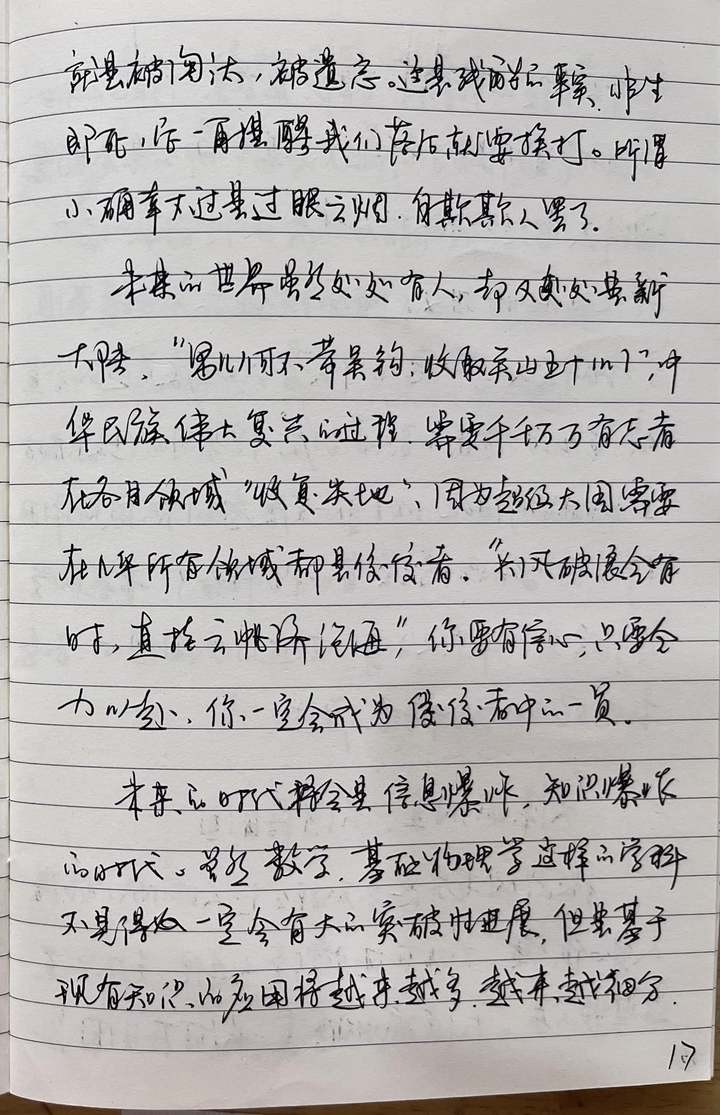 就是被淘汰，被遗忘。这是残酷的事实，非生
即死，历一再提醒我们落后就要挨打。所谓
小确幸不过是过眼云烟，自欺欺人罢了。
未来的世界虽然处处有人，却又处处是新
大陆，“男儿何不带吴钩，收取关山五十州”，中
华民族伟大复兴的过程，需要千千万万有志者
在各自领域“收复失地”，因为超级大国需要
在几乎所有领域都是佼佼者。“长风破浪会有
时，直挂云帆济沧海”，你要有信心，只要全
力以赴，你一定会成为佼佼者中的一员。
未来的时代将会是信息爆炸，知识爆炸
的时代。虽然数学，基础物理学这样的学科
不见得一定会有大的突破性进展，但是基于
现有知识的应用将越来越多，越来越细分，
17